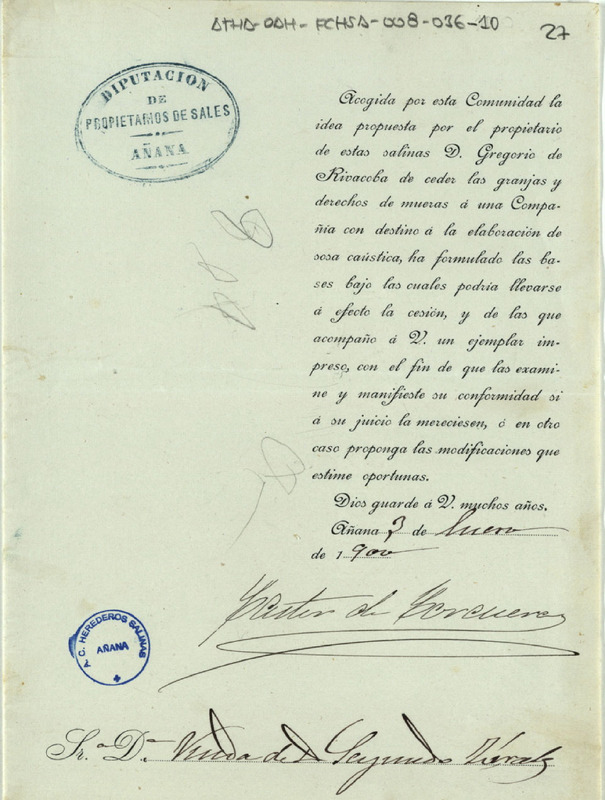 ATHA-DAH-FCHSA-008-036-10
27
DIPUTACION
DE
PROPIETARIOS DE SALES
AÑANA
Acogida por esta Comunidad la
idea propuesta por el propietario
de estas salinas D. Gregorio de
Rivacoba de ceder las granjas y
derechos de mueras á una Compa-
ñia con destino á la elaboración de
sosa caústica, ha formulado las ba-
ses bajo las cuales podria llevarse
á efecto la cesión, y de las que
acompaño á V. un ejemplar im-
preso, con el fin de que las exami-
ne y manifieste su conformidad si
á su juicio la mereciesen, ó en otro
caso proponga las modificaciones que
estime oportunas.
Dios guarde á V. muchos años.
Añana 3 de Enero
de 1900
de Corcuera
C. HEREDEROS SALINAS
AÑANA
Sr.ª D.ª Viuda de Segundo